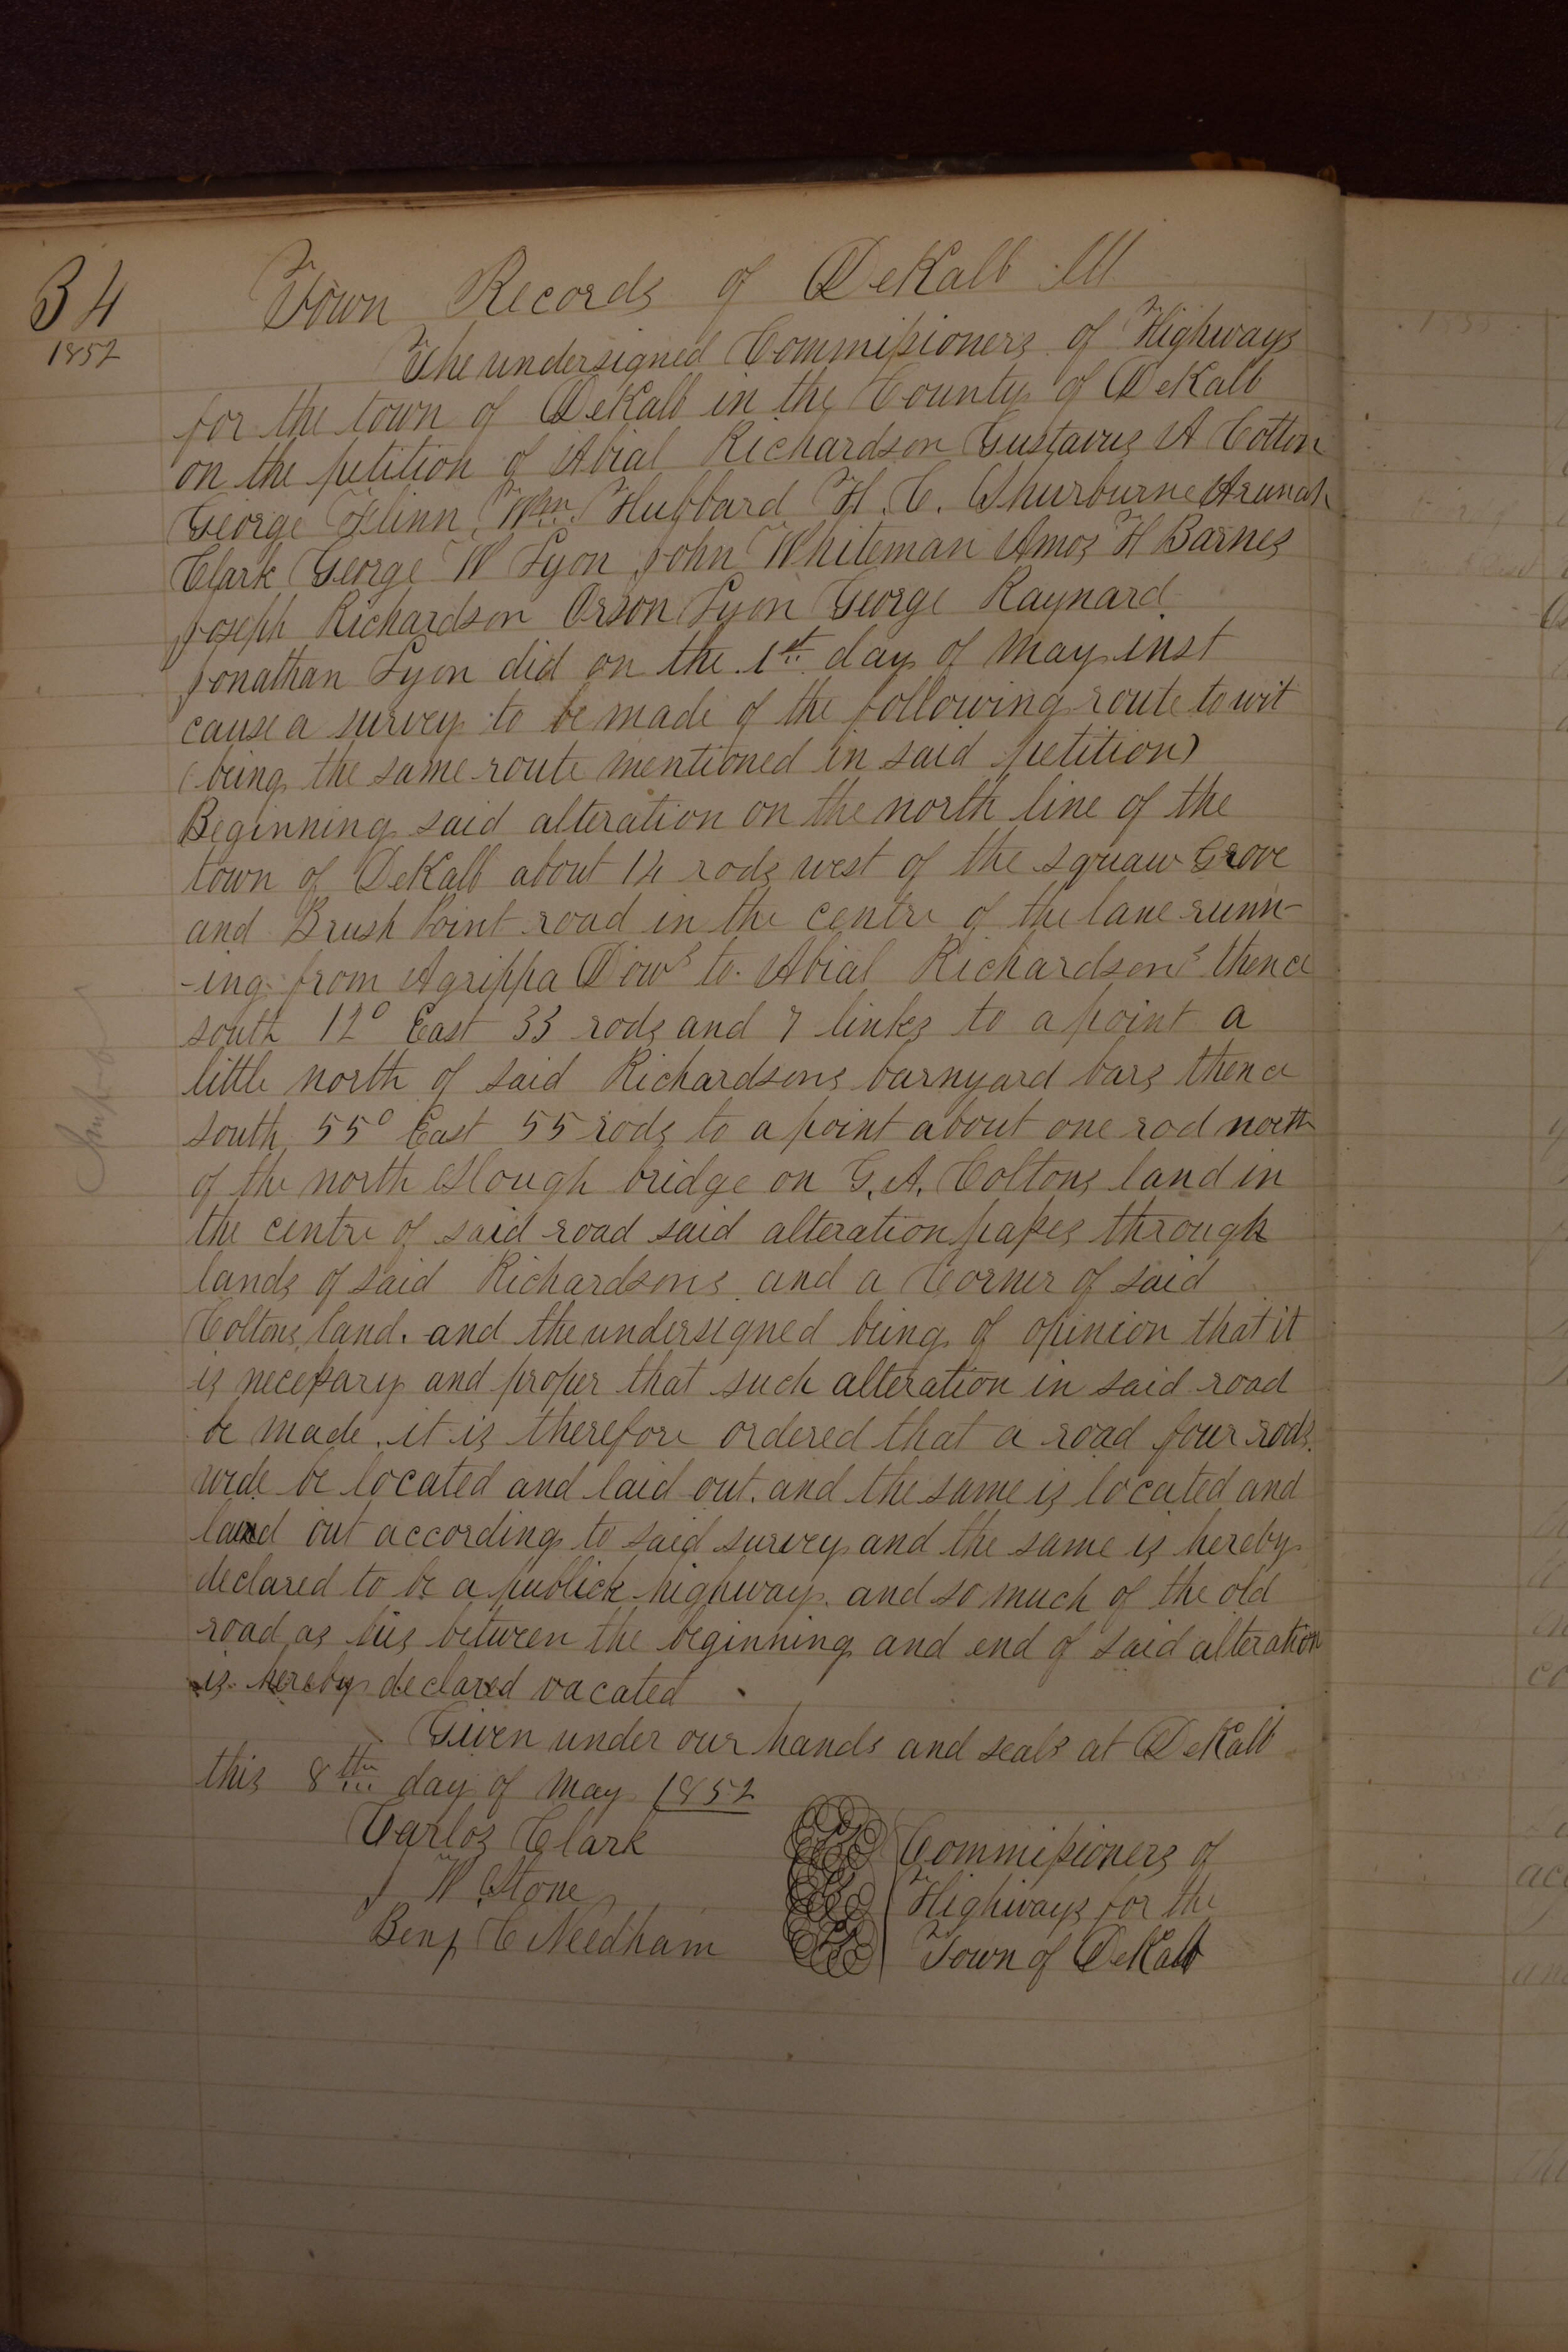 34
1852
Town Records of DeKalb Ill
The undersigned Commissioners of Highways
for the town of DeKalb in the County of DeKalb
on the petition of Abial Richardson Gustavus A Colton
George Flinn, Wm. Hubbard H. C. Shurburne Arunah
Clark George W Lyon John Whiteman Amos H Barnes
Joseph Richardson Orson Lyon George Raynard
Jonathan Lyon did on the 1st day of May inst
cause a survey to be made of the following route to wit
(being the same route mentioned in said petition)
Beginning said alteration on the north line of the
town of DeKalb about 14 rods west of the squaw Grove
and Brush Point road in the centre of the lane runn-
-ing from Agrippa Dows to Abial Richardsons thence
south 12° East 33 rods and 7 links to a point a
little north of said Richardsons barnyard bars thence
south 55° East 55 rods to a point about one rod north
of the north Slough bridge on G. A. Coltons land in
the centre of said road said alteration passes through
lands of said Richardsons and a Corner of said
Coltons land. and the undersigned being of opinion that it
is necessary and proper that such alteration in said road
be made. it is therefore ordered that a road four rods
wide be located and laid out. and the same is located and
laid out according to said survey and the same is hereby
declared to be a publick highway. and so much of the old
road as lies between the beginning and end of said alteration
is hereby declared vacated
Given under our hands and seals at DeKalb
this 8th day of May 1852
Carlos Clark
J W Stone
Benj C Needham
Commissioners of
Highways for the
Town of DeKalb